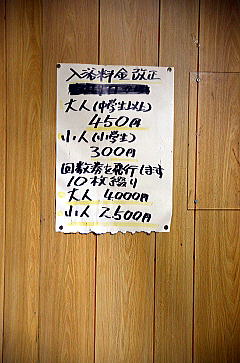 入浴料金改正
大人(中学生以上)
450円
小人(小学生)
300円
回数券を発行します
10枚綴り
大人 4,000円
小人 2,500円